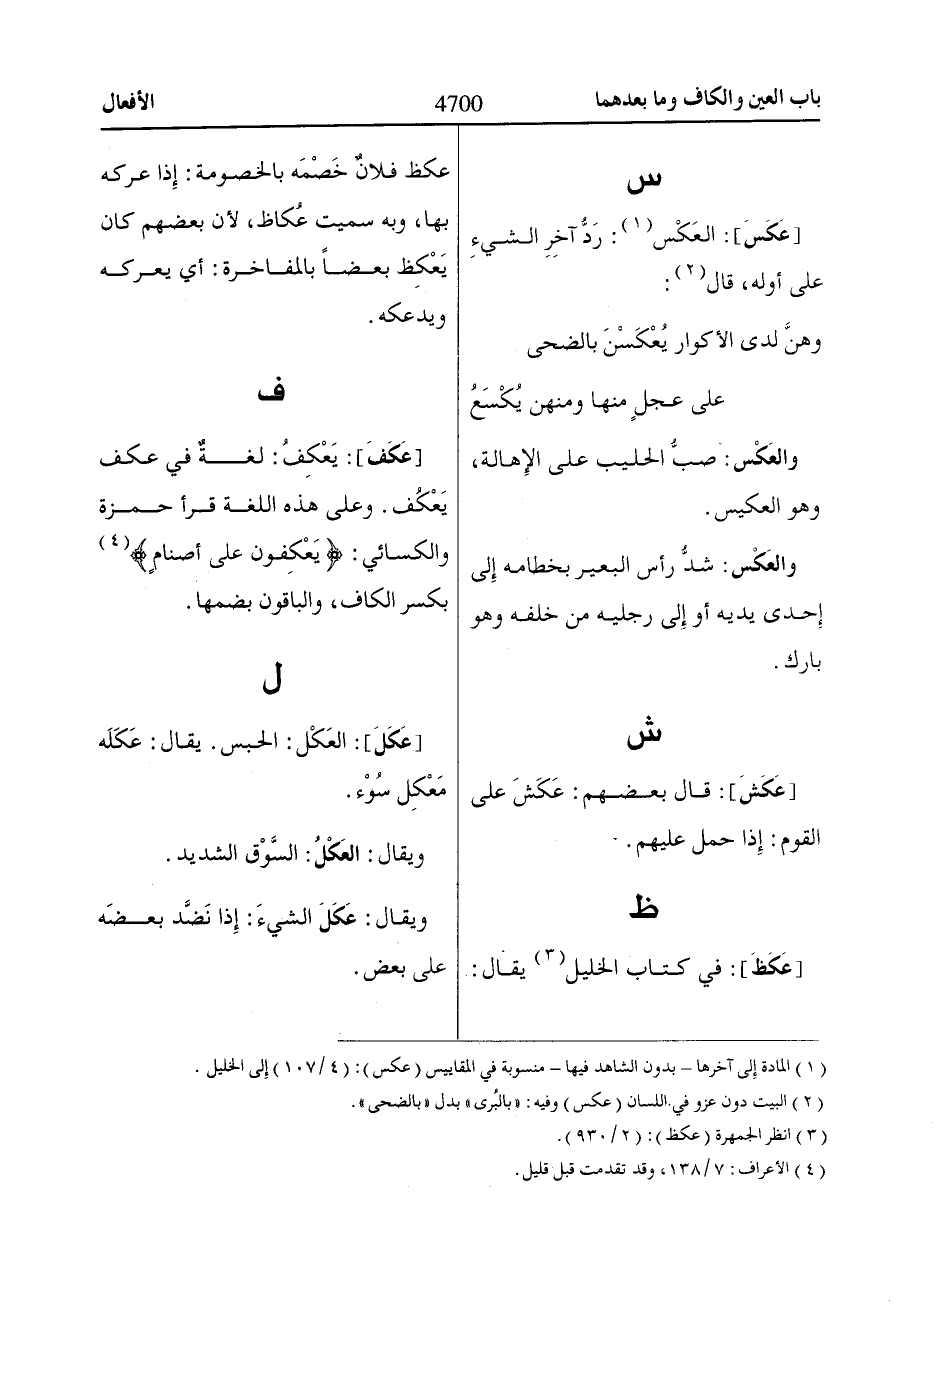 باب العين والكاف وما بعدهما
4700
الأفعال
س
[عَكَسَ]: العَكْس(١): رَدُّ آخرِ الشيءِ
على أوله، قال(٢):
وهنَّ لدى الأكوار يُعْكَسْنَ بالضحى
على عجلٍ منها ومنهن يُكْسَعُ
والعَكْس: صبُّ الحليب على الإهالة،
وهو العكيس.
والعَكْس: شدُّ رأس البعير بخطامه إلى
إحدى يديه أو إلى رجليه من خلفه وهو
بارك.
ش
[عَكَشَ]: قال بعضهم: عَكَشَ على
القوم: إذا حمل عليهم.
ظ
[عَكَظَ]: في كتاب الخليل(٣) يقال:
عكظ فلانٌ خَصْمَه بالخصومة: إذا عركه
بها، وبه سميت عُكاظ، لأن بعضهم كان
يَعْكِظ بعضاً بالمفاخرة: أي يعركه
ويدعكه.
ف
[عَكَفَ]: يَعْكِفُ: لغةٌ في عكف
يَعْكُف. وعلى هذه اللغة قرأ حمزة
والكسائي: ﴿يَعْكِفون على أصنامٍ﴾(٤)
بكسر الكاف، والباقون بضمها.
ل
[عَكَلَ]: العَكْل: الحبس. يقال: عَكَلَه
مَعْكِل سُوْء.
ويقال: العَكْلُ: السَّوْق الشديد.
ويقال: عَكَلَ الشيءَ: إذا نَضَّد بعضَه
على بعض.
(١) المادة إلى آخرها – بدون الشاهد فيها – منسوبة في المقاييس (عكس): (٤/١٠٧) إلى الخليل.
(٢) البيت دون عزو في اللسان (عكس) وفيه: «بالبُرى» بدل «بالضحى».
(٣) انظر الجمهرة (عكظ): (٢/٩٣٠).
(٤) الأعراف: ٧/١٣٨، وقد تقدمت قبل قليل.